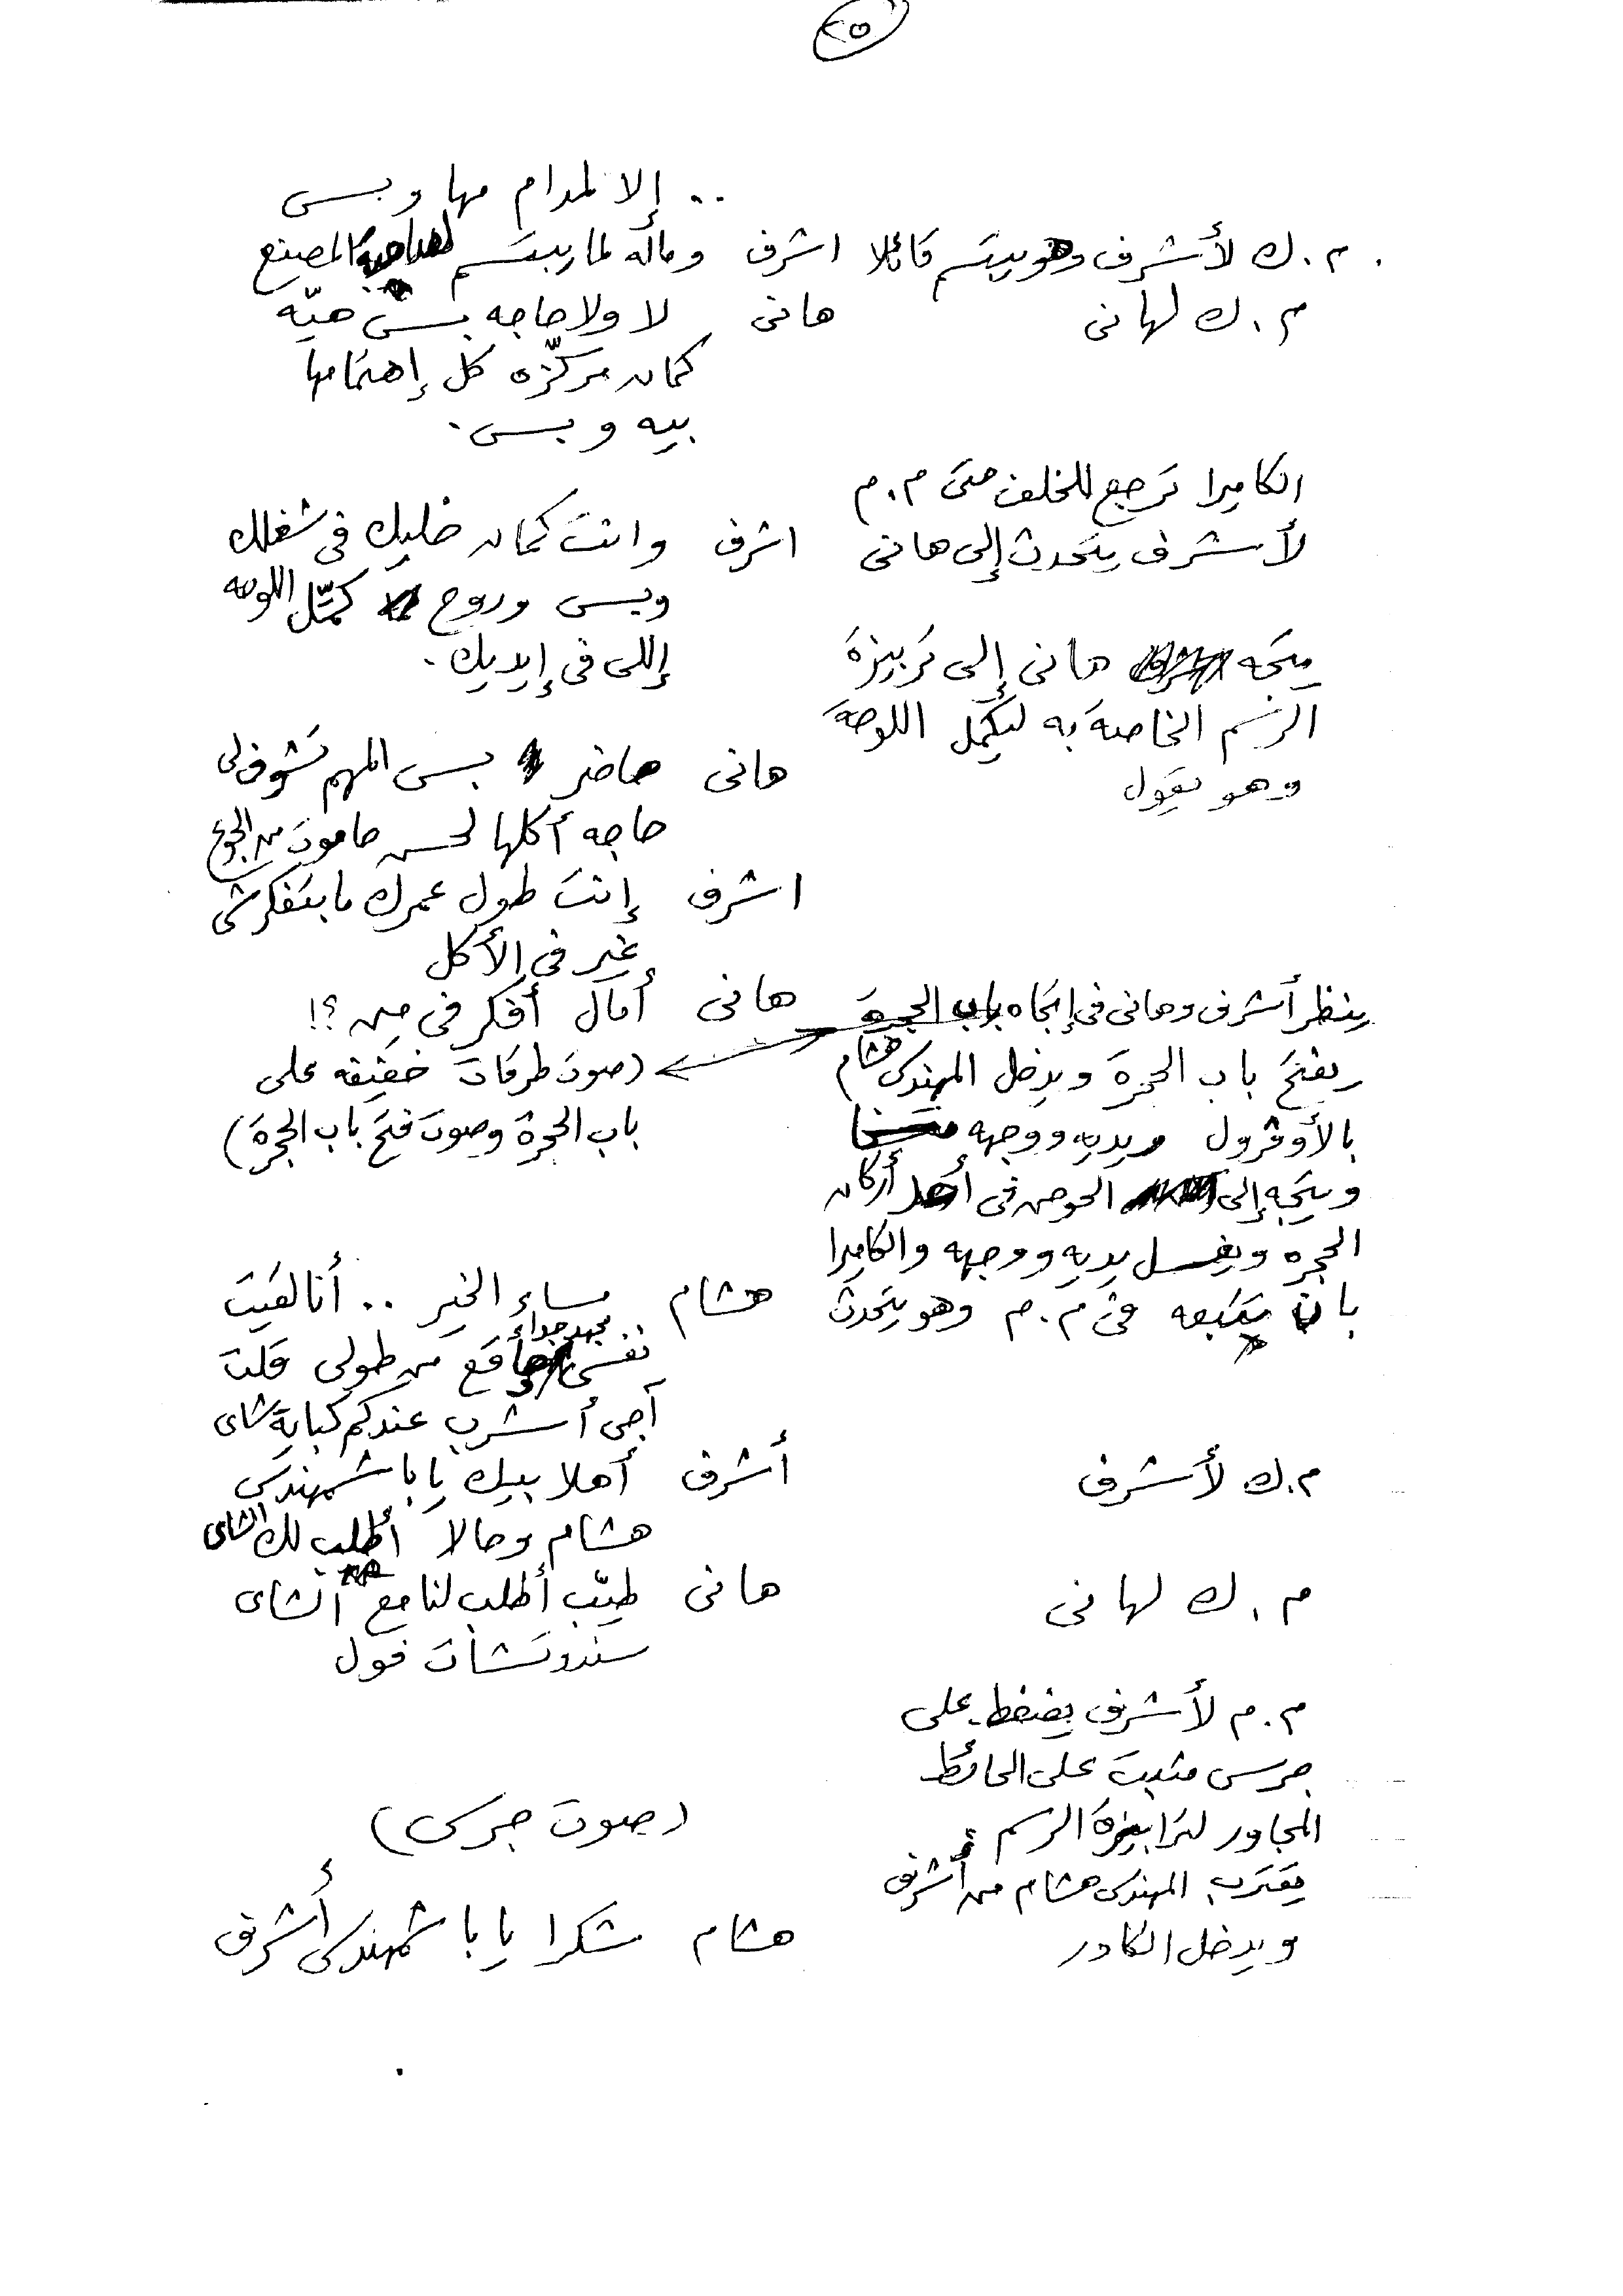 ٢٥
.. إلا لمدام مها وبس
م.ك لأشرف وهو يبتسم قائلا اشرف وماله لما يبتسم لصاحبة المصنع
م.ك لهانى هانى لا ولا حاجه بس هيّه
كمان مركّزه كل إهتمامها
بيه وبس.
الكاميرا ترجع للخلف حتى م.م
لأشرف يتحدث إلى هانى اشرف وانت كمان خليك فى شغلك
وبس وروح كمّل اللوحه
إللى فى إيديك.
يتجه هانى إلى تربيزة
الرسم الخاصة به ليكمل اللوحة
هانى حاضر بس المهم تشوف لى
وهو يقول
حاجه أكلها لحسن حاموت من الجوع
اشرف إنت طول عمرك ما بتفكرش
غير فى الأكل
ينظر أشرف وهانى فى إتجاه باب الحجرة هانى أمال أفكر فى مين ؟!
يفتح باب الحجرة ويدخل المهندس هشام (صوت طرقات خفيفه على
بالأوفرول ويديه ووجهه متسخا باب الحجرة وصوت فتح باب الحجرة)
ويتجه إلى الحوض فى أحد أركان
الحجره ويغسل يديه ووجهه والكاميرا
بان تتبعه فى م.م وهو يتحدث هشام مساء الخير .. أنا لقيت
نفسى مجهد جداً وحاقع من طولى قلت
آجى أشرب عندكم كباية شاى
م.ك لأشرف أشرف أهلا بيك يا باشمهندس
هشام وحالا أطلب لك الشاى
م.ك لهانى هانى طيّب أطلب لنا مع الشاى
سندوتشات فول
م.م لأشرف يضغط على
جرس مثبت على الحائط
المجاور لترابيزة الرسم (صوت جرس)
يقترب المهندس هشام من أشرف
ويدخل الكادر هشام شكرا يا باشمهندس أشرف